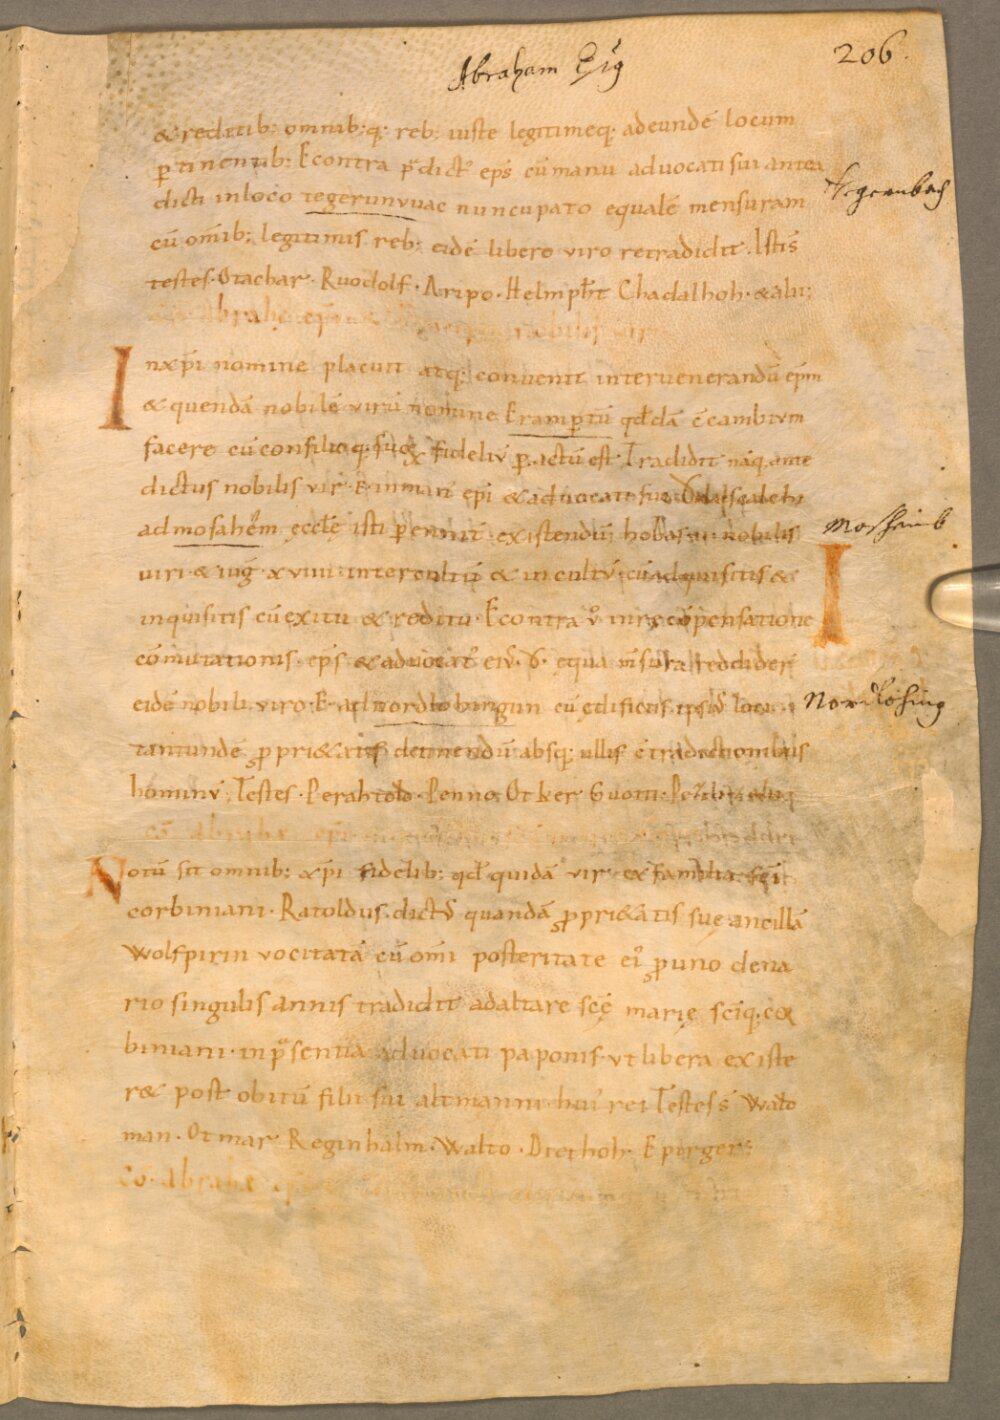 Abraham
206.
& reditib: omnib:q: reb: iuste legitimeq: adeundē locum
ꝑtinentib: Econtra p̄dict' ep̄s cū manu advocati sui antea
dicti inloco tegerunvuac nuncupato equalē mensuram
Tegernbach
cū om̄ib: legitimis reb: eidē libero viro retradidit. Istis̄
testes. Otachar. Ruodolf. Aripo. Helmpħt Chadalhoh. & alii;
nobilis vir
Inxp̄i nomine placuit atq: convenit inter venerandū ep̄m
& quendā nobilē virū nomine Eramꝑtū qđdā c̄cambivm
facere cū consilio q: suoꝝ fideliū ꝑactū est. Tradidit nāq. ante
dictus nobilis vir. E. in manī ep̄i & advocati sui
ad mosahēm ęcclę isti ꝑennit̄ existendū hobas nobilis
Moshaimb
viri & iuḡ xviiii inter cultū & incultū cū adquisitis &
inquisitis cū exitu & reditu. Econtra v̊ in recōpensatione
cōmutationis. ep̄s & advocat' eiꝰ. equa m̄sura reddider̄
eidē nobili viro. E. ad nordlobingun cū ędificiis ipsiꝰ loci
Nordlohing
tantundē ꝓpri&atis detinendū absq: ullis c̄tradictionibus
hominū. Testes. Perahtolđ. Penno. Otker
Notū sit omnib: xp̄i fidelib: qđ quidā vir ex familia sc̄i
corbiniani. Ratoldus dictꝰ quandā ꝓpri&atis suę ancillā
Wolfpirin vocitatā cū om̄i posteritate ei' ꝓ uno dena
rio singulis annis tradidit ad altare scę̄ marię sc̄iq. coꝝ
biniani. in p̄sentia advocati paponis. vt libera existe
r& post obitū filii sui altmanni. hui' rei Testes s̄ Walđo
man. Otmar Reginhalm. Walto. Diethoh. Eperger;
Cō. Abrahę